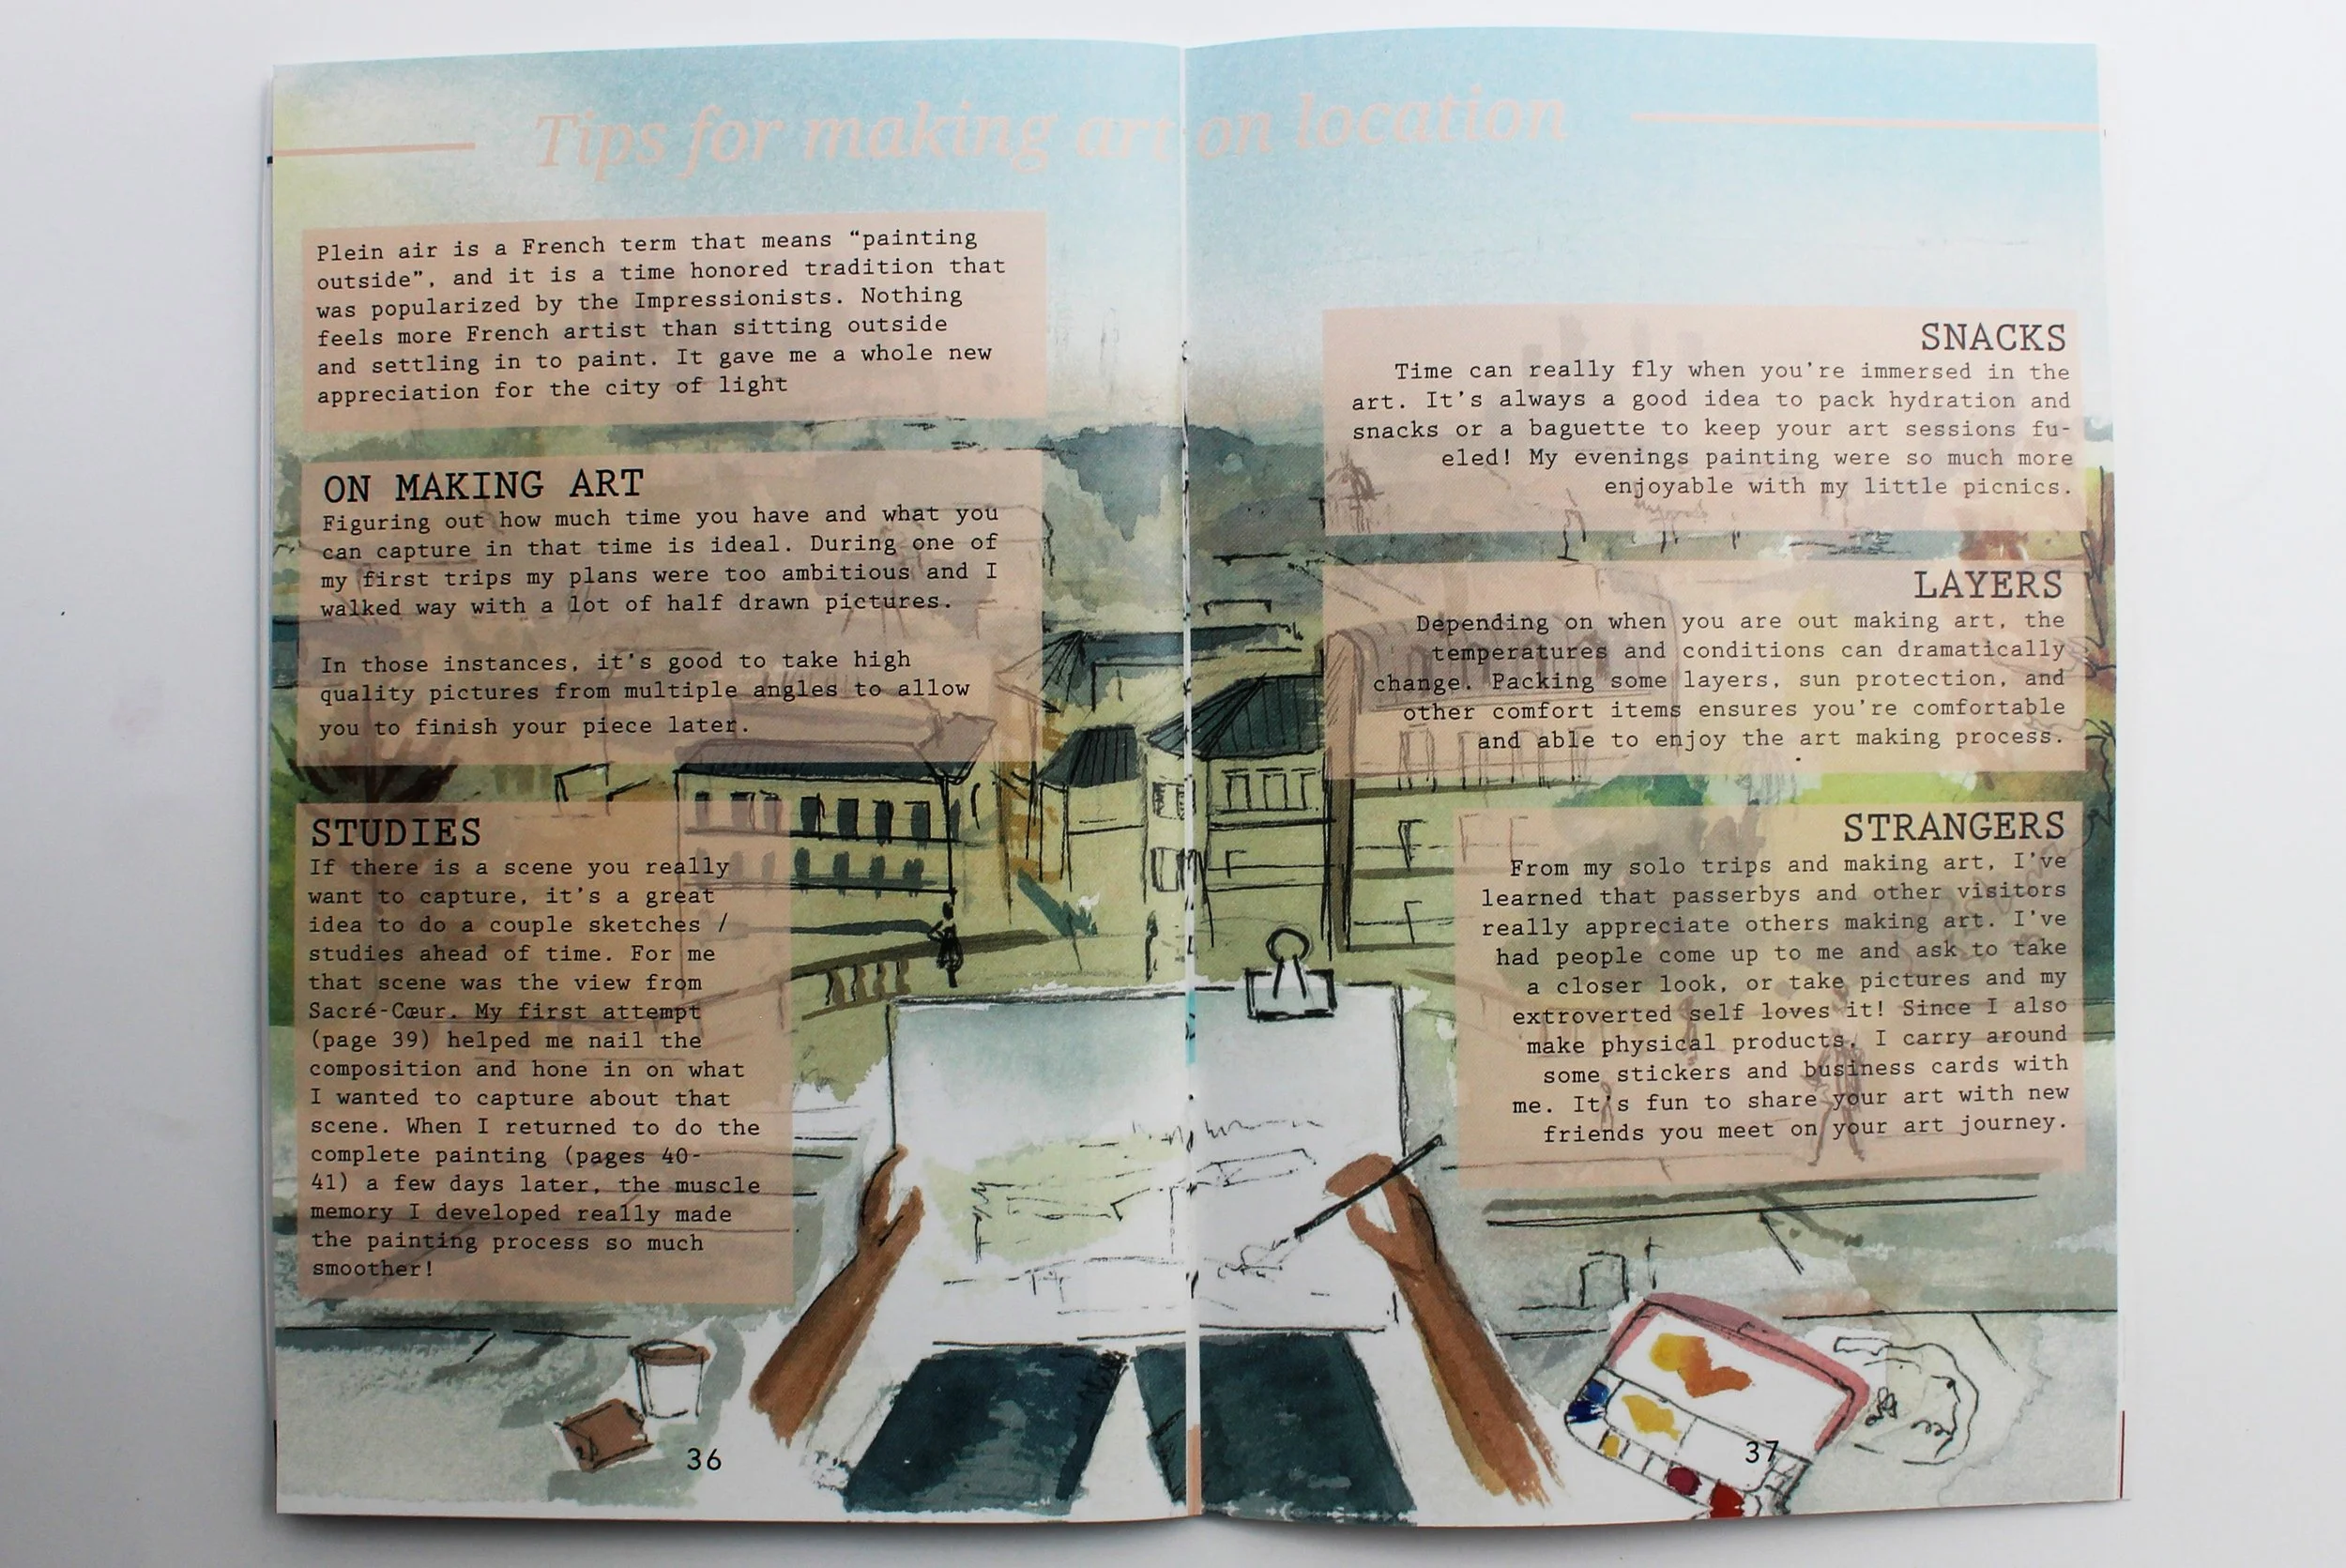 Tips for making art on location
Plein air is a French term that means “painting
outside”, and it is a time honored tradition that
was popularized by the Impressionists. Nothing
feels more French artist than sitting outside
and settling in to paint. It gave me a whole new
appreciation for the city of light
ON MAKING ART
Figuring out how much time you have and what you
can capture in that time is ideal. During one of
my first trips my plans were too ambitious and I
walked way with a lot of half drawn pictures.
In those instances, it's good to take high
quality pictures from multiple angles to allow
you to finish your piece later.
STUDIES
If there is a scene you really
want to capture, it's a great
idea to do a couple sketches /
studies ahead of time. For me
that scene was the view from
Sacré-Cœur. My first attempt
(page 39) helped me nail the
composition and hone in on what
I wanted to capture about that
scene. When I returned to do the
complete painting (pages 40-
41) a few days later, the muscle
memory I developed really made
the painting process so much
smoother!
36
SNACKS
Time can really fly when you're immersed in the
art. It's always a good idea to pack hydration and
snacks or a baguette to keep your art sessions fu-
eled! My evenings painting were so much more
enjoyable with my little picnics.
LAYERS
Depending on when you are out making art, the
temperatures and conditions can dramatically
change. Packing some layers, sun protection, and
other comfort items ensures you're comfortable
and able to enjoy the art making process.
STRANGERS
From my solo trips and making art, I've
learned that passerbys and other visitors
really appreciate others making art. I've
had people come up to me and ask to take
a closer look, or take pictures and my
extroverted self loves it! Since I also
make physical products, I carry around
some stickers and business cards with
me. It's fun to share your art with new
friends you meet on your art journey.
37